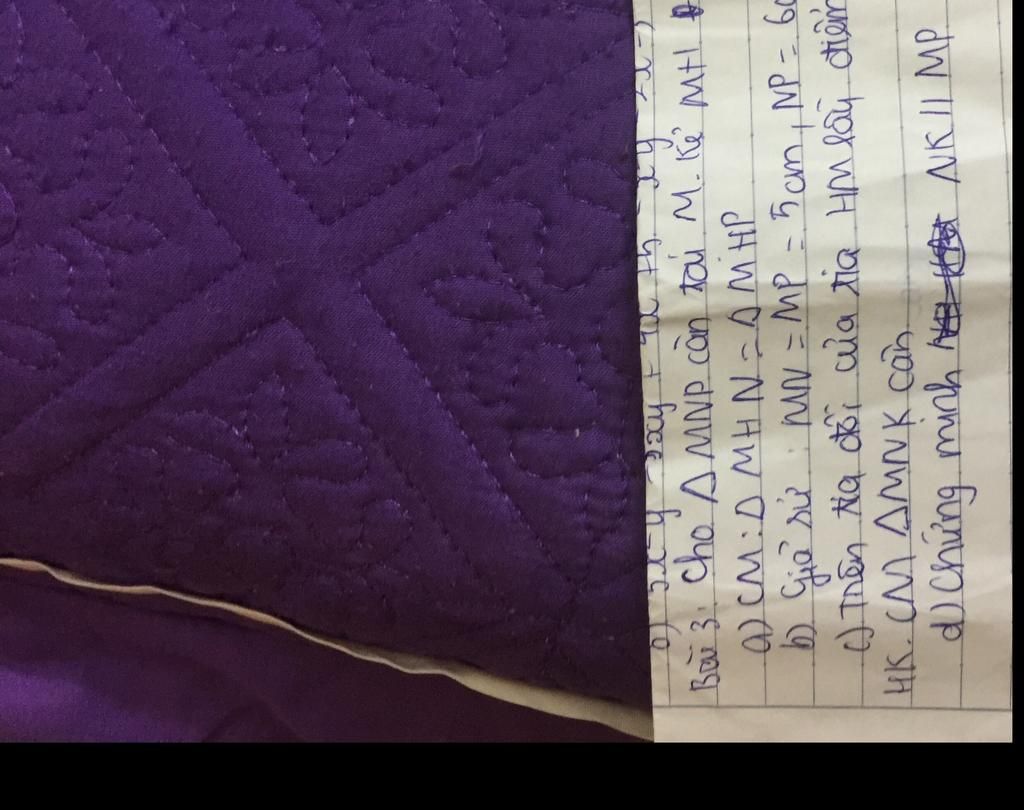 Bài 3: Cho Δ MNP cân tại M. Kẻ MH
a) CM: Δ MHN = Δ MHP
b) Giả sử MN = MP = 5cm, NP = 6c
c) Trên tia đối của tia HM lấy điểm
HK. CM ΔMNK cân
d) Chứng minh NK // MP